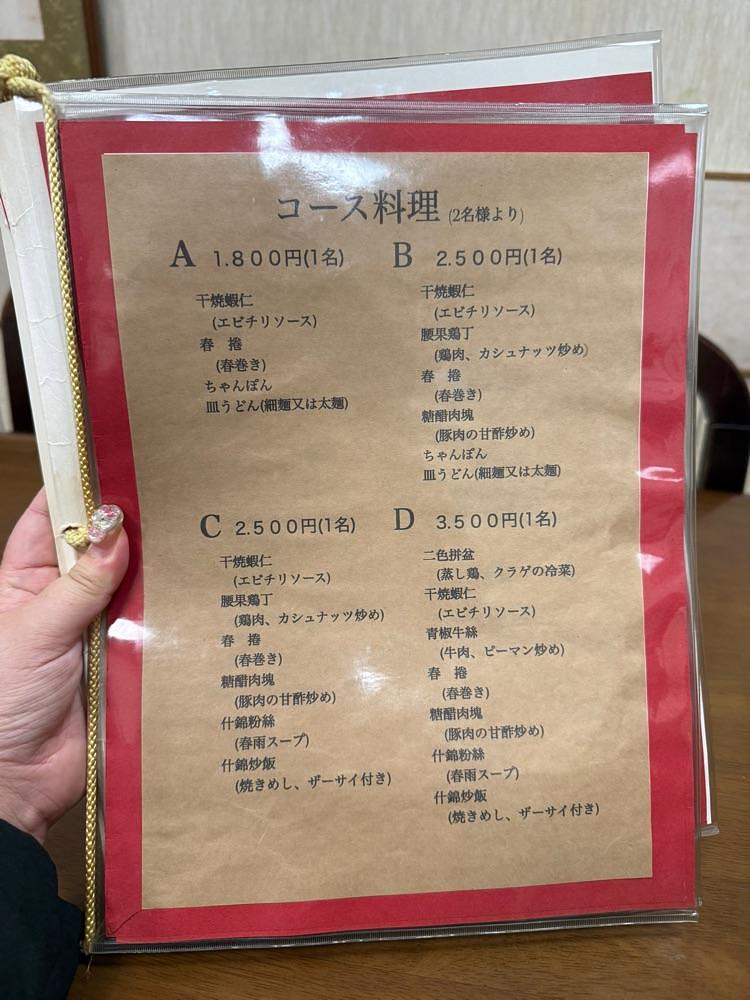 コース料理 (2名様より)
A 1.800円(1名)
干焼蝦仁
(エビチリソース)
春　捲
(春巻き)
ちゃんぽん
皿うどん(細麺又は太麺)
B 2.500円(1名)
干焼蝦仁
(エビチリソース)
腰果鶏丁
(鶏肉、カシュナッツ炒め)
春　捲
(春巻き)
糖醋肉塊
(豚肉の甘酢炒め)
ちゃんぽん
皿うどん(細麺又は太麺)
C 2.500円(1名)
干焼蝦仁
(エビチリソース)
腰果鶏丁
(鶏肉、カシュナッツ炒め)
春　捲
(春巻き)
糖醋肉塊
(豚肉の甘酢炒め)
什錦粉絲
(春雨スープ)
什錦炒飯
(焼きめし、ザーサイ付き)
D 3.500円(1名)
二色拼盆
(蒸し鶏、クラゲの冷菜)
干焼蝦仁
(エビチリソース)
青椒牛絲
(牛肉、ピーマン炒め)
春　捲
(春巻き)
糖醋肉塊
(豚肉の甘酢炒め)
什錦粉絲
(春雨スープ)
什錦炒飯
(焼きめし、ザーサイ付き)